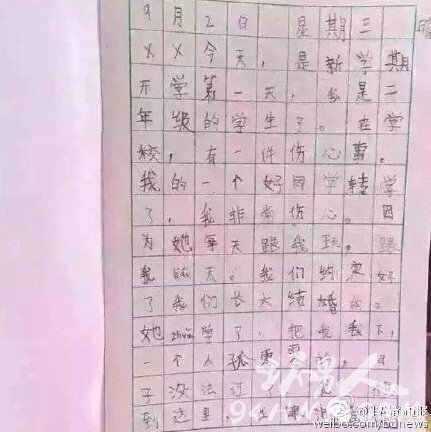 9月2日 星期三
XX今天,是新学期
开学第一天,我是二
年级的学生了。在学
校,有一件伤心事。
我的一个好同学转学
了,我非常伤心。因
为她每天跟我玩。跟
我天。我们约定好
了我们长大结婚的。
她zhuan学了.把我下,
一个人孤零零的。日
子没法过了
到这里,
weibo.com/bdnews